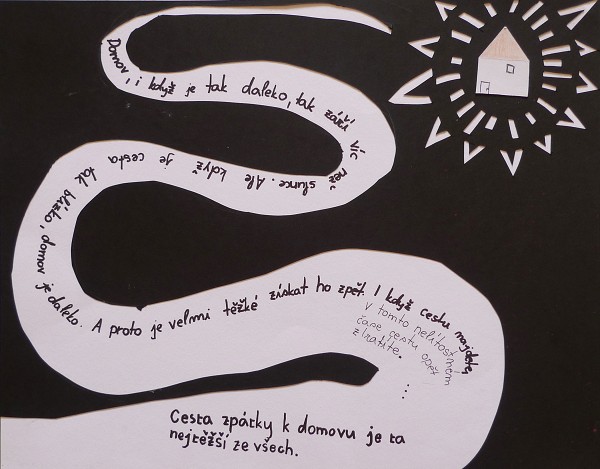 Domov, i když je tak daleko, tak září víc než slunce. Ale když je cesta tak blízko, domov je daleko. A proto je velmi těžké získat ho zpět. I když cestu najdete,
v tomto nelítostném
čase cestu opět
ztratíte.
...
Cesta zpátky k domovu je ta
nejtěžší ze všech.